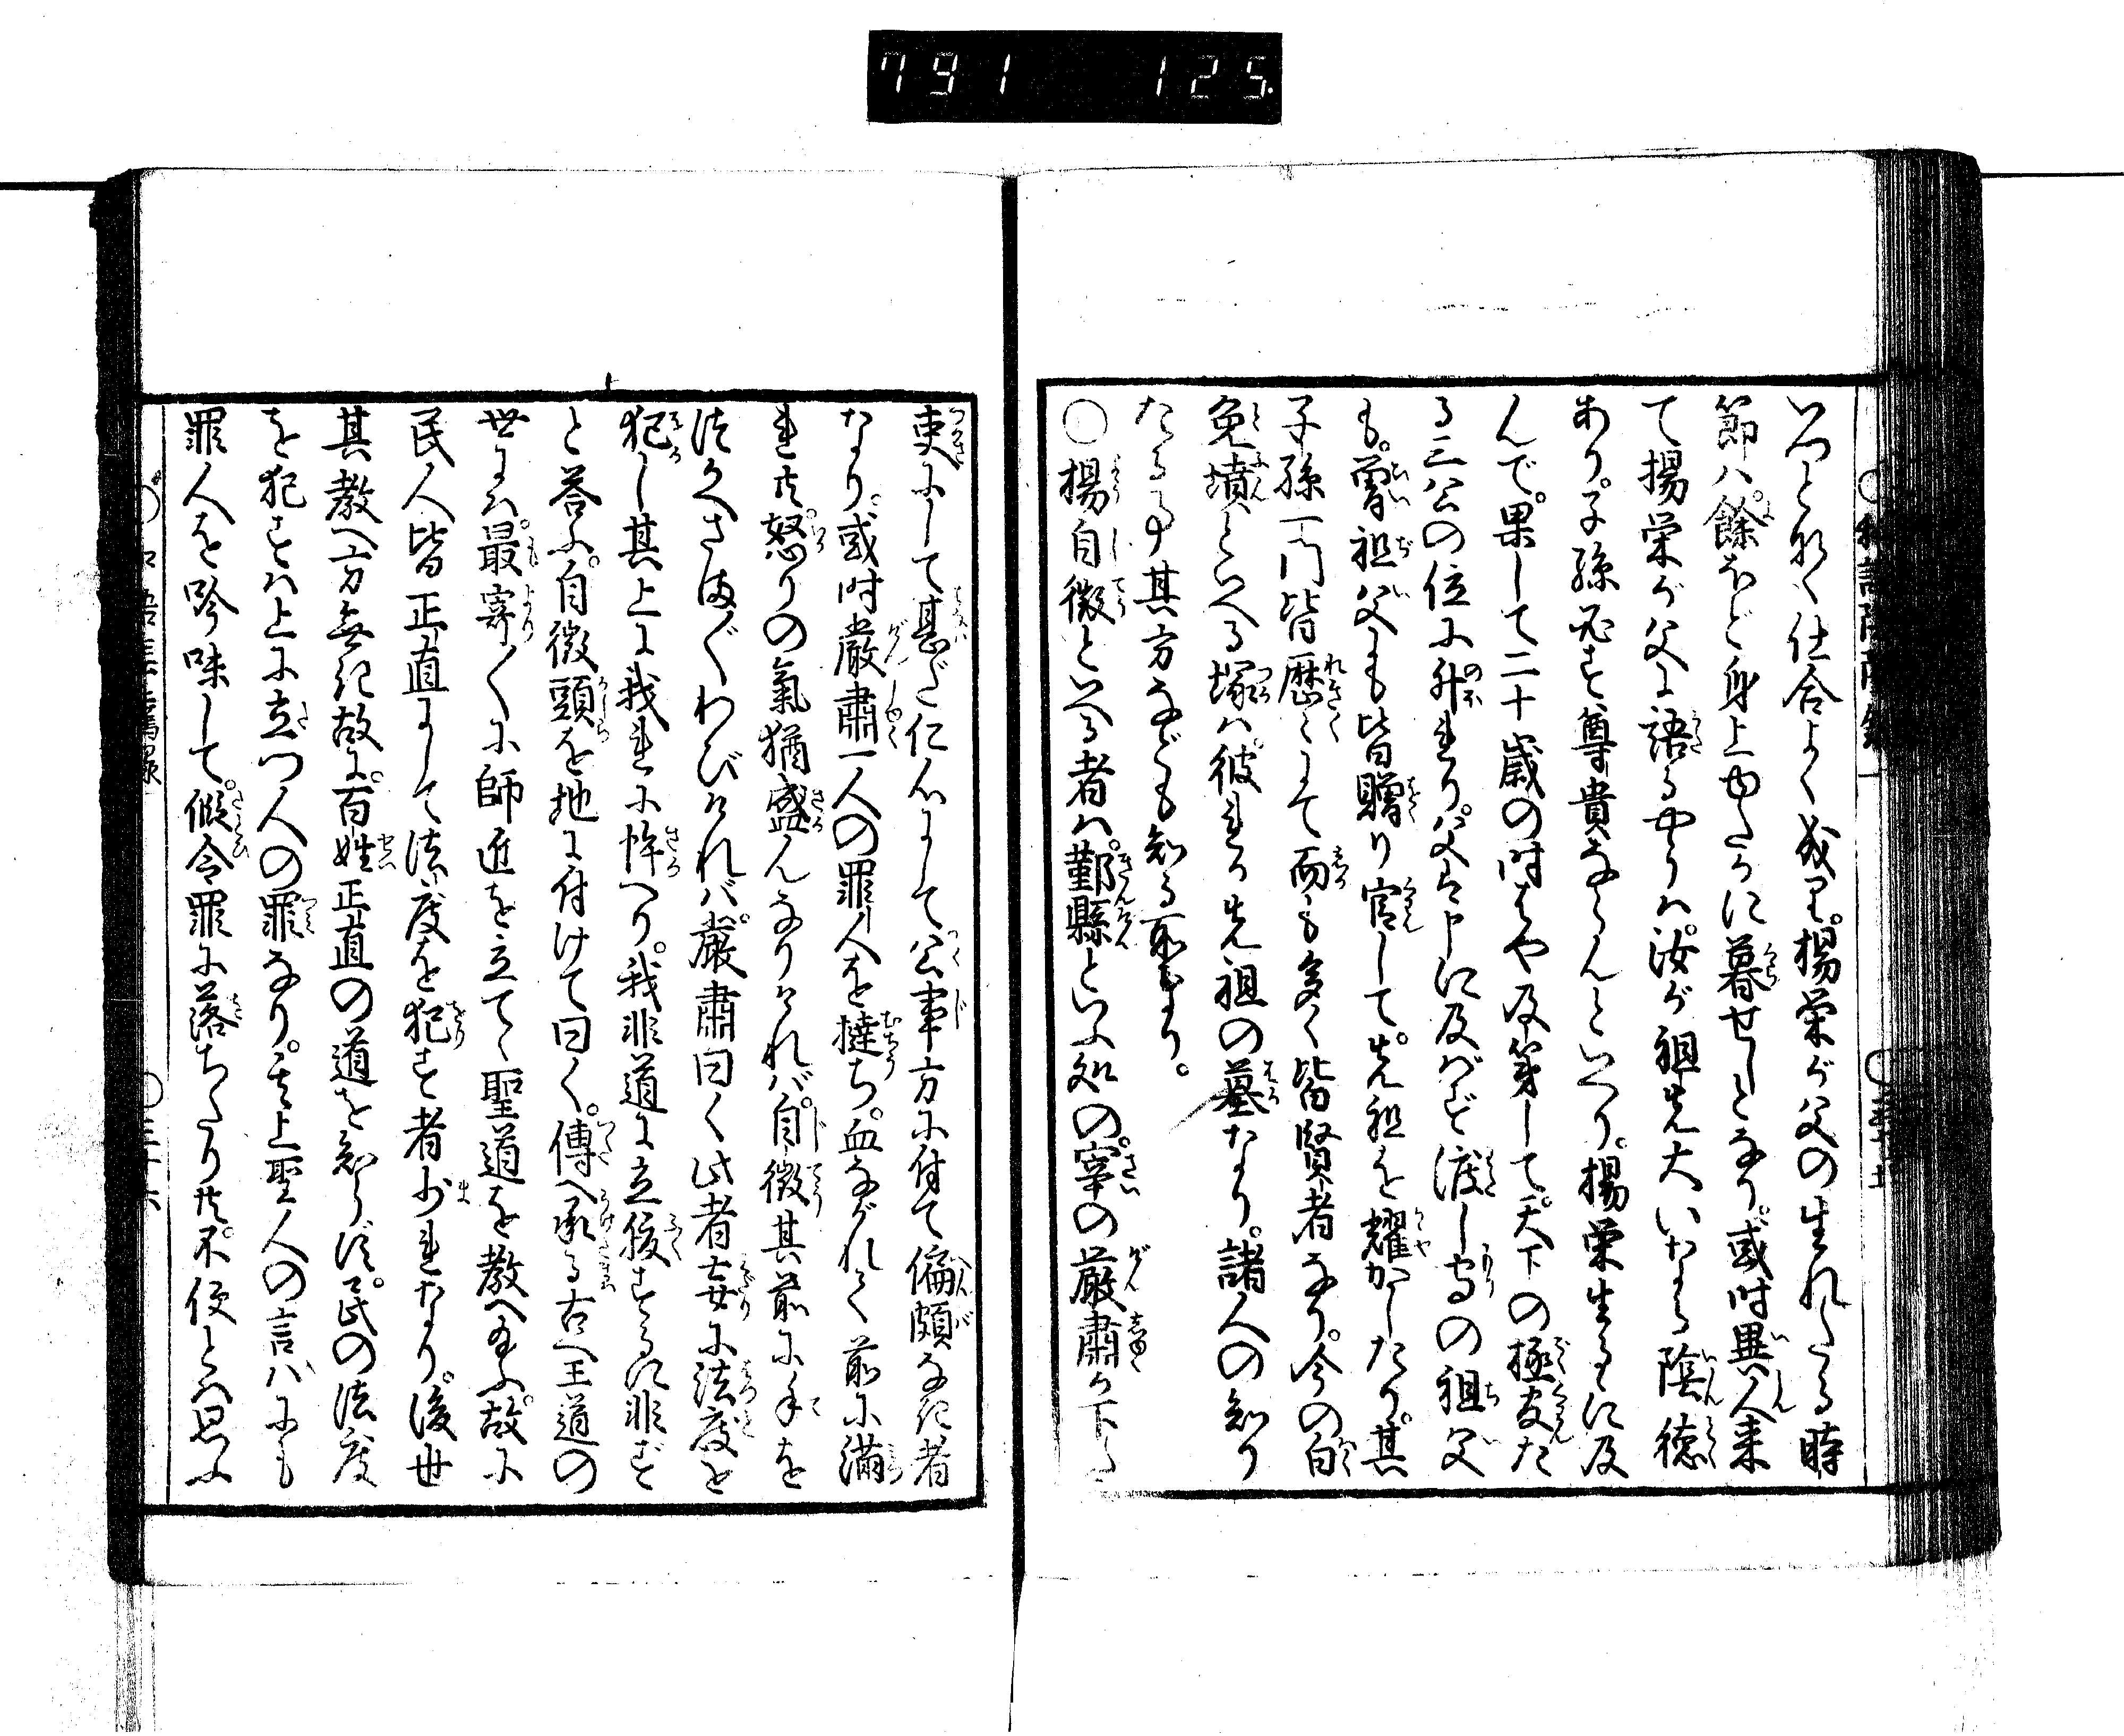 791 125
いつとなく仕合よく成り。揚栄が父の生れたる時
節は。餘ほど身上ゆたかに暮せしとなり。或时異人来
て揚栄が父に語るやうは。汝が祖先大いなる陰徳
あり。子孫必ず尊貴ならんといへり。揚栄生るゝに及
んで。果して二十歳の时はや及第して。天下の極官た
る三公の位に升れり。父は申に及ばず渡し守の祖父
も。曽祖父も皆贈り官して。先祖を耀かしたり。其
子孫一门皆歴々にて而も多く皆賢者なり。今の白
兎墳といへる塚は。彼れが先祖の墓なり。諸人の知り
たる事其方なども知る所なり。
○揚自徴といへる者は。鄞縣といふ処の。宰の厳肅が下た
吏にして甚だ仁心にして。公事方に付て偏頗なき者
なり。或时厳肅一人の罪人を撻ち。血ながれて前に満
れ共。怒りの氣猶盛んなりければ。自徴其前に手を
つかへさまざまわびければ。厳肅曰く此者妄に法度を
犯し其上に我れに悖へり。我非道に立腹するに非ず
と答ふ。自徴頭を地に付けて曰く。傳へ承る古へ王道の
世には。最寄〱に師匠を立てゝ聖道を教へ玉ふ。故に
民人皆正直にして法度を犯す者少れなり。後世
其教へ方無き故に。百姓正直の道を知らず。民の法度
を犯すは上に立つ人の罪なり。其上聖人の言ばにも
罪人を吟味して。假令罪に落ちたり共。不便とは思ふ